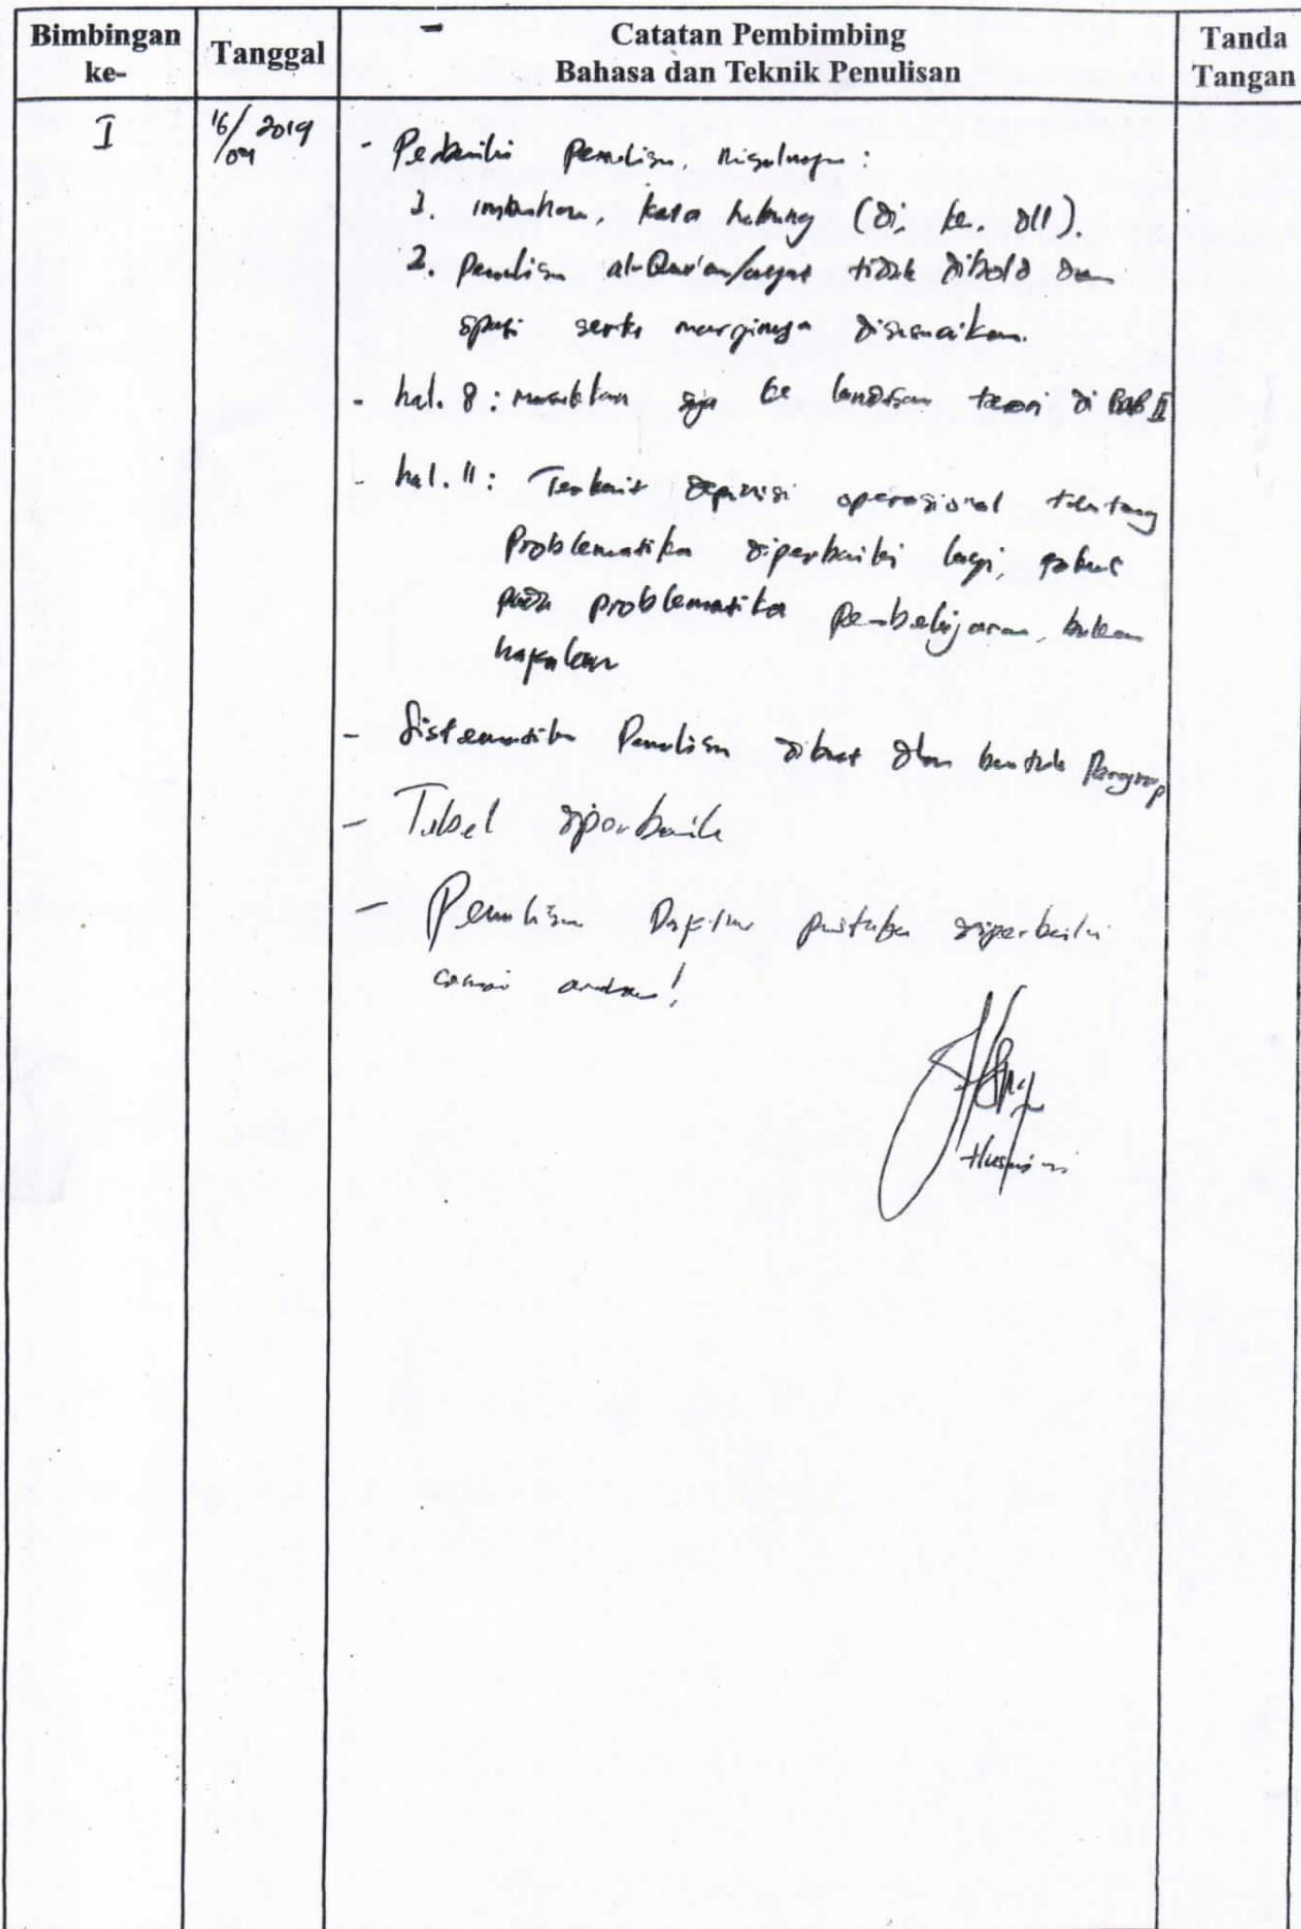 Bimbingan ke-
Tanggal
Catatan Pembimbing
Bahasa dan Teknik Penulisan
Tanda Tangan
I
16/09 2019
- Perbaiki Penulisan, misalnya :
1. imbuhan, kata hubung (di, ke, dll).
2. Penulisan al-Qur'an/ayat tidak dibold dan
spasi serta marginnya disesuaikan.
- hal. 8 : masukkan saja ke landasan teori di BAB II
- hal. 11 : Terkait depinisi operasional tentang
Problematika diperbaiki lagi, fokus
pada problematika Pembelajaran, bukan
hapalan
- Sistematika Penulisan dibuat dlm bentuk Paragrap
- Tabel diperbaik
- Penulisan Daftar pustaka diperbaiki
sesuai !
Husnaini